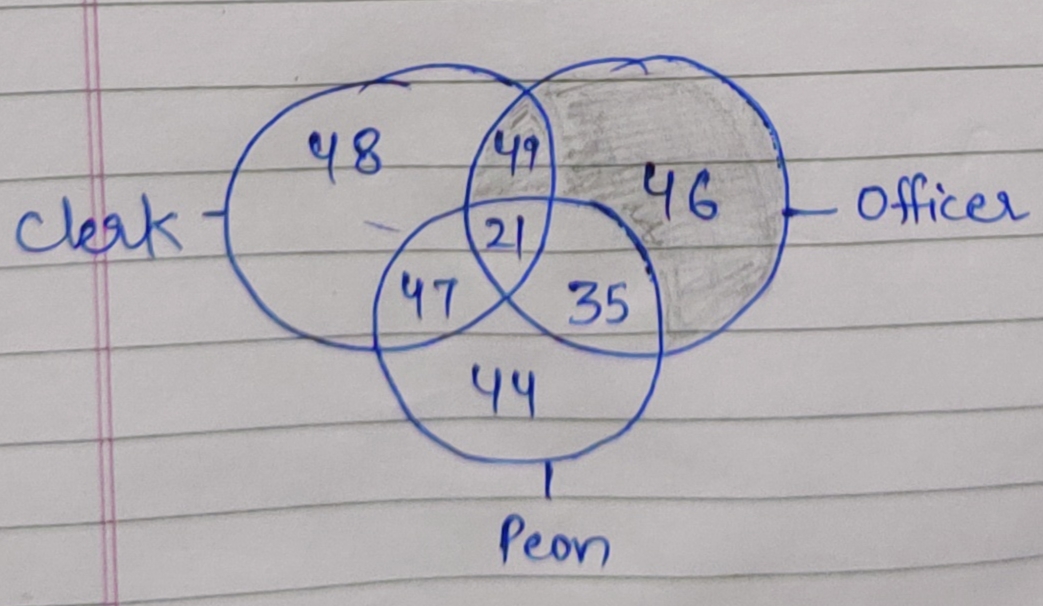 48
49
46
Clerk
Officer
21
47
35
44
Peon